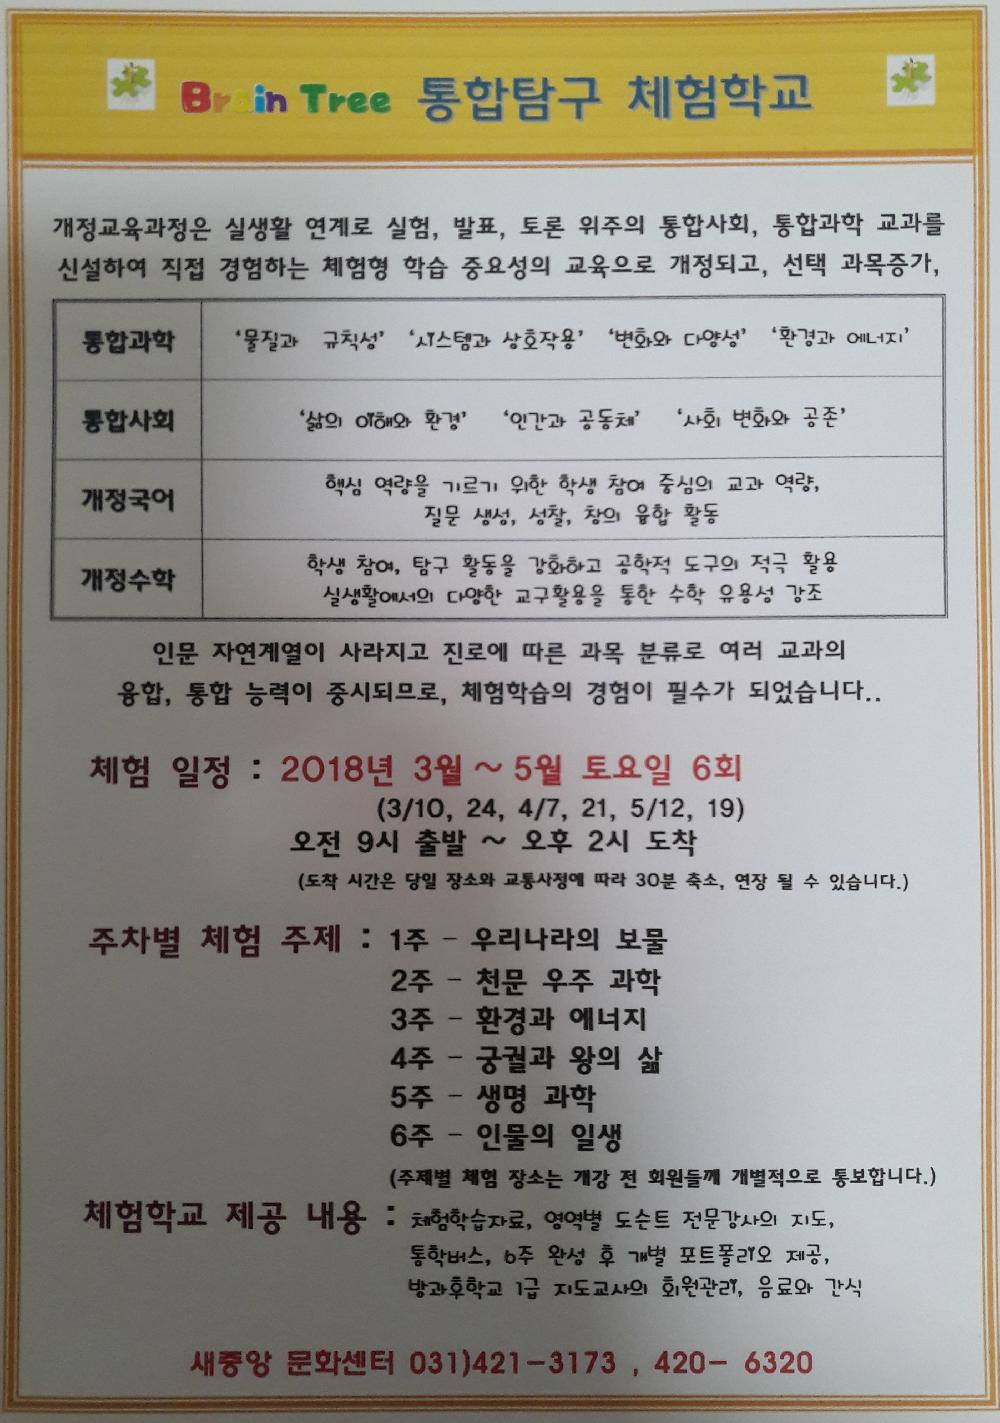 Brain Tree 통합탐구 체험학교
개정교육과정은 실생활 연계로 실험, 발표, 토론 위주의 통합사회, 통합과학 교과를
신설하여 직접 경험하는 체험형 학습 중요성의 교육으로 개정되고, 선택 과목증가,
통합과학 '물질과 규칙성' '시스템과 상호작용' '변화와 다양성' '환경과 에너지'
통합사회 '삶의 이해와 환경' '인간과 공동체' '사회 변화와 공존'
개정국어 핵심 역량을 기르기 위한 학생 참여 중심의 교과 역량,
질문 생성, 성찰, 창의 융합 활동
개정수학 학생 참여, 탐구 활동을 강화하고 공학적 도구의 적극 활용
실생활에서의 다양한 교구활용을 통한 수학 유용성 강조
인문 자연계열이 사라지고 진로에 따른 과목 분류로 여러 교과의
융합, 통합 능력이 중시되므로, 체험학습의 경험이 필수가 되었습니다..
체험 일정 : 2018년 3월 ~ 5월 토요일 6회
(3/10, 24, 4/7, 21, 5/12, 19)
오전 9시 출발 ~ 오후 2시 도착
(도착 시간은 당일 장소와 교통사정에 따라 30분 축소, 연장 될 수 있습니다.)
주차별 체험 주제 : 1주 - 우리나라의 보물
2주 - 천문 우주 과학
3주 - 환경과 에너지
4주 - 궁궐과 왕의 삶
5주 - 생명 과학
6주 - 인물의 일생
(주제별 체험 장소는 개강 전 회원들께 개별적으로 통보합니다.)
체험학교 제공 내용 : 체험학습자료, 영역별 도슨트 전문강사의 지도,
통학버스, 6주 완성 후 개별 포트폴리오 제공,
방과후학교 1급 지도교사의 회원관리, 음료와 간식
새중앙 문화센터 031)421-3173 , 420- 6320